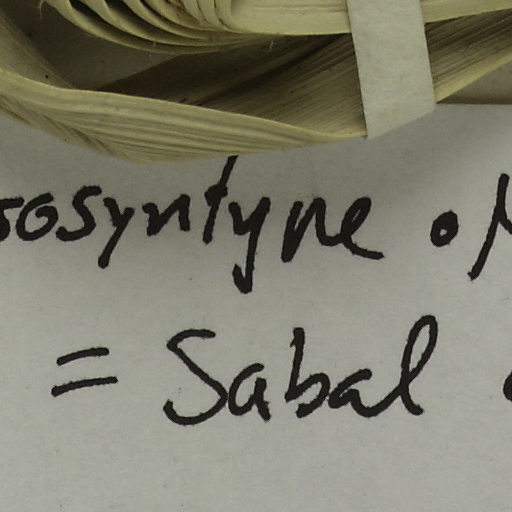 sosyntype of
= Sabal